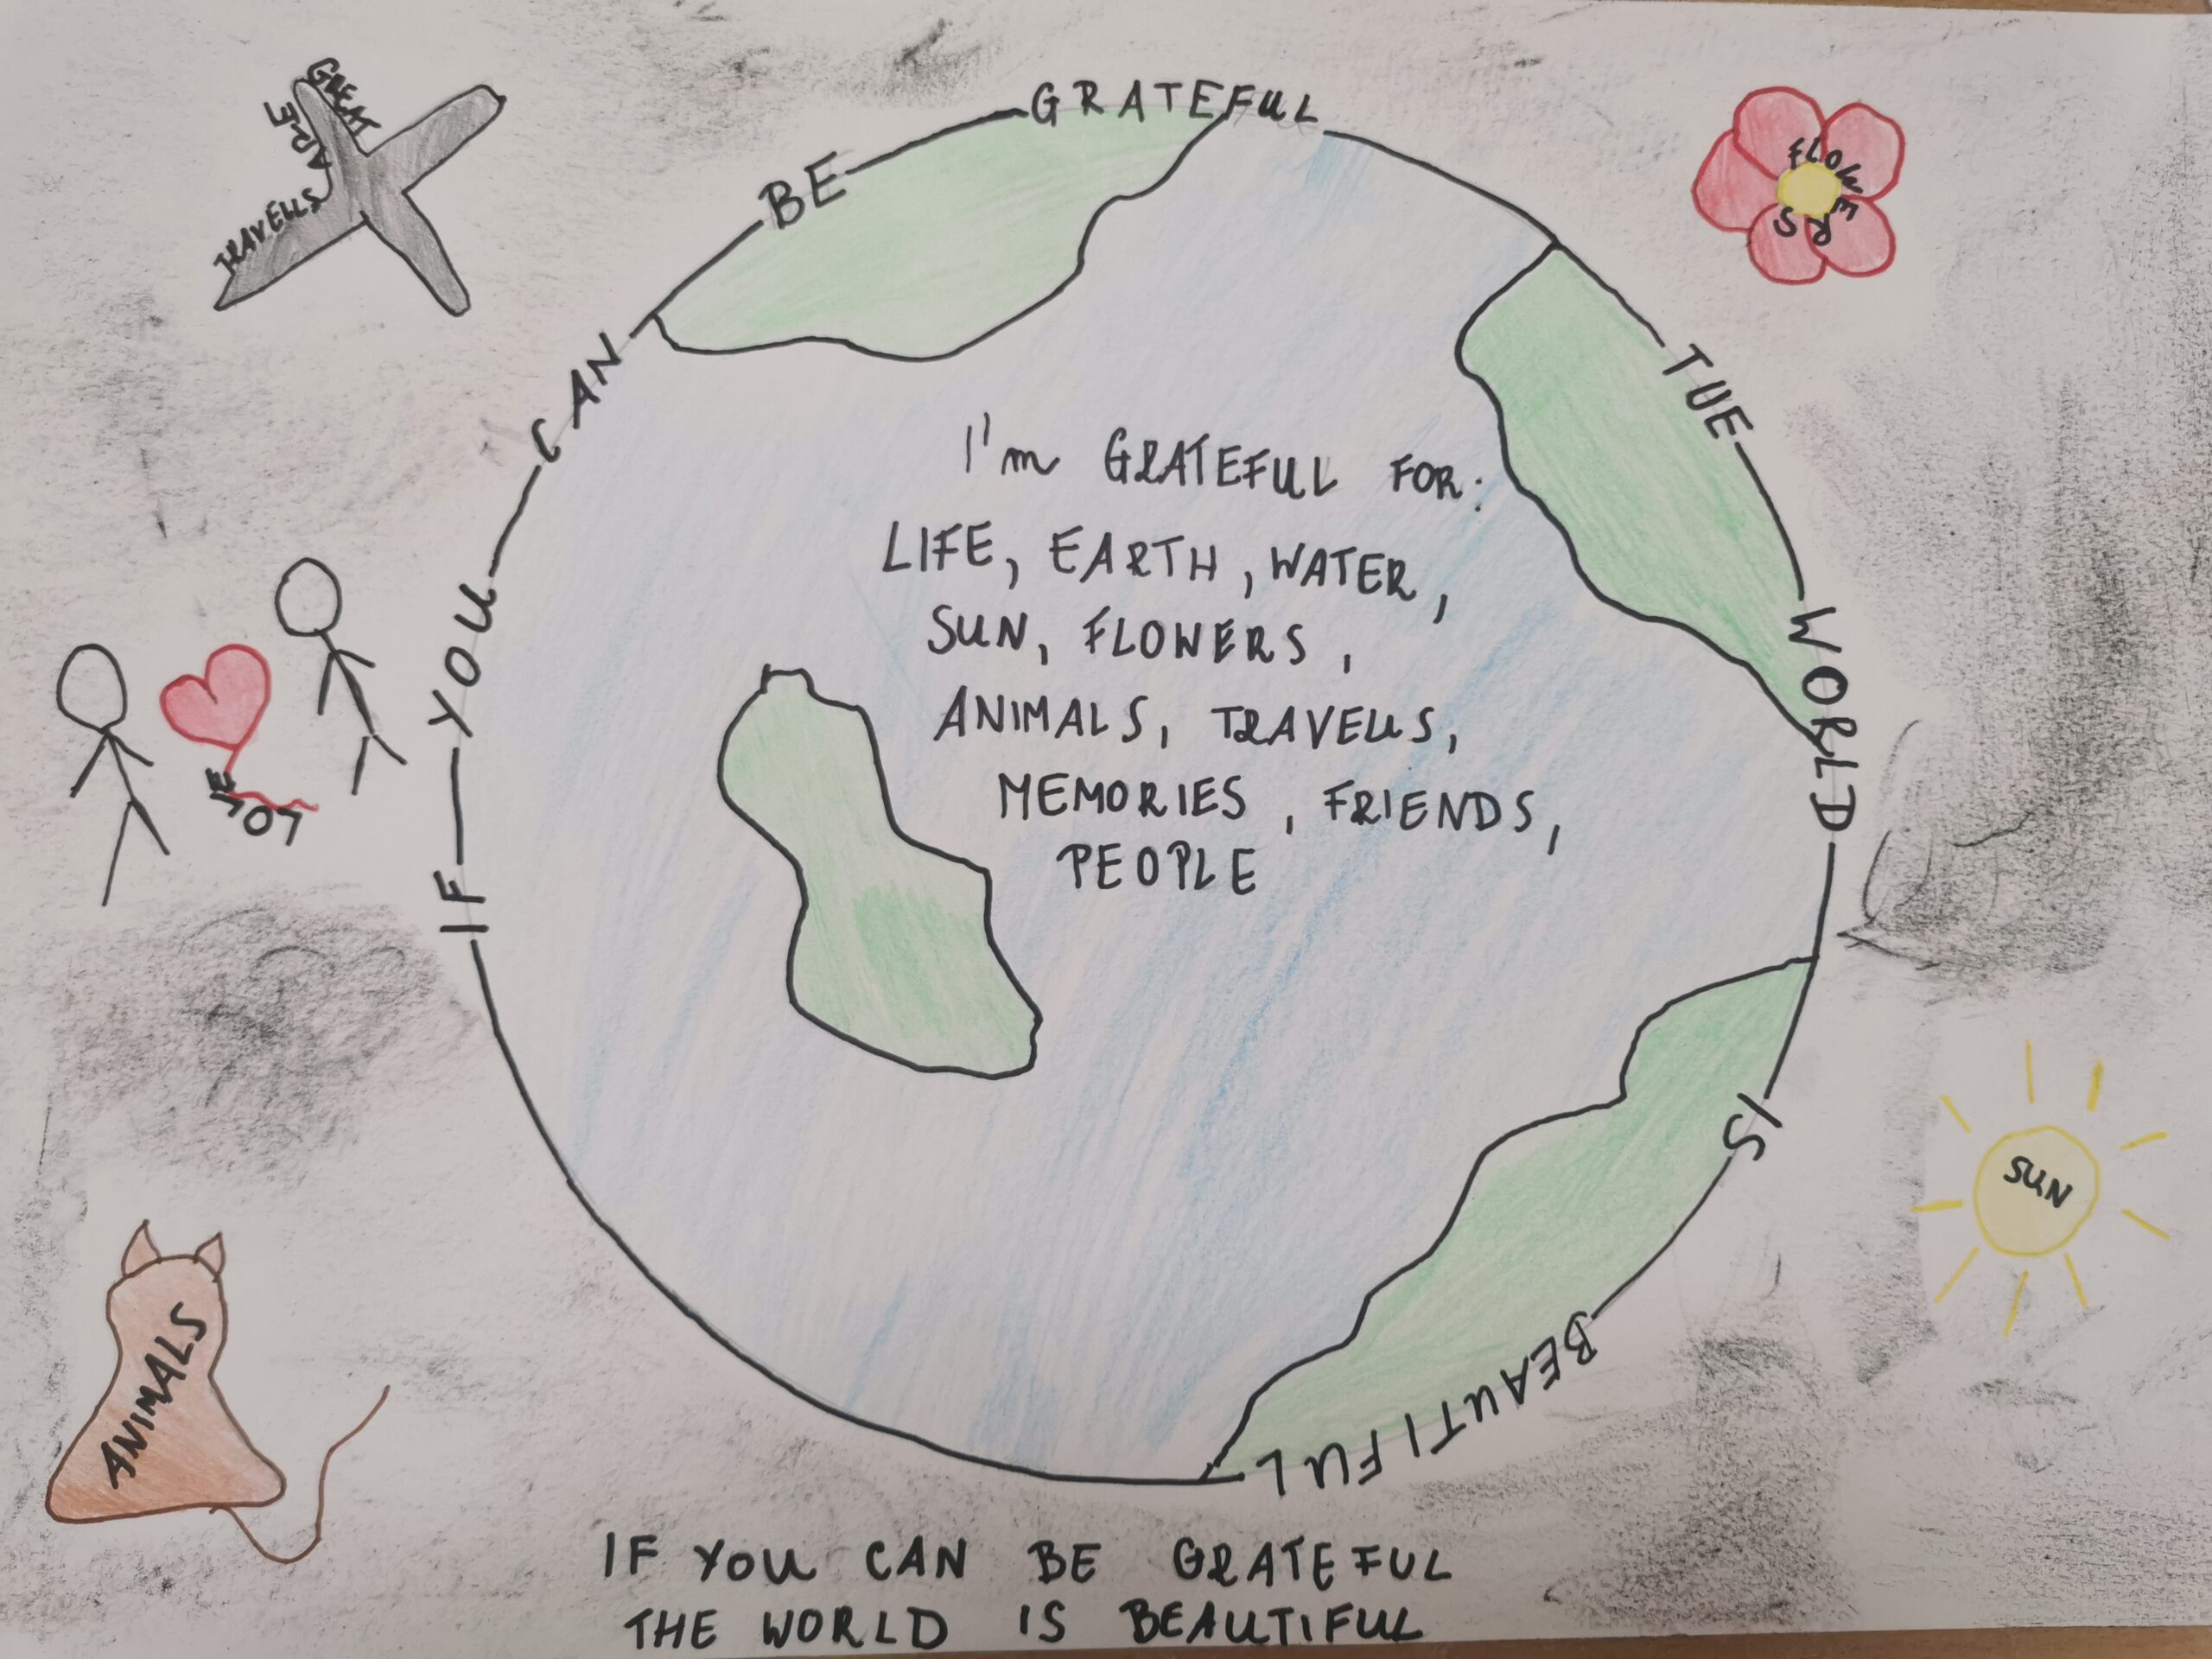 TRAVELLS ARE GREAT
FLOWERS
IF YOU CAN BE GRATEFUL TUE WORLD IS BEAUTIFUL
I'm GRATEFUL FOR:
LIFE, EARTH, WATER,
SUN, FLOWERS,
ANIMALS, TRAVELLS,
MEMORIES, FRIENDS,
PEOPLE
LOVE
SUN
ANIMALS
IF YOU CAN BE GRATEFUL
THE WORLD IS BEAUTIFUL